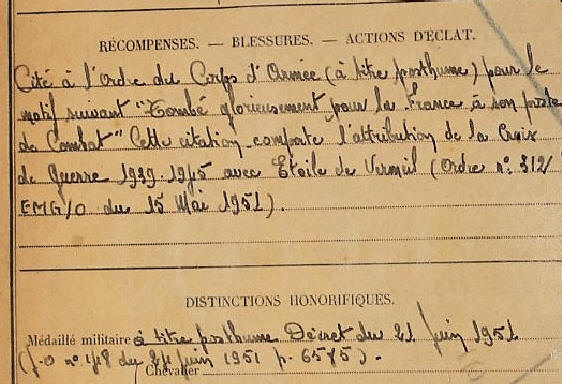 RÉCOMPENSES. — BLESSURES. — ACTIONS D'ÉCLAT.
Cité à l'Ordre du Corps d'Armée (à titre posthume) pour le
motif suivant "Tombé glorieusement pour la France à son poste
de Combat" Cette citation comporte l'attribution de la Croix
de Guerre 1939-1945 avec Etoile de Vermeil (Ordre n° 512/
EMG/O du 15 Mai 1951).
DISTINCTIONS HONORIFIQUES.
Médaillé militaire à titre posthume Décret du 21 Juin 1951
(J.O n° 148 du 24 Juin 1951 p. 6585).
Chevalier